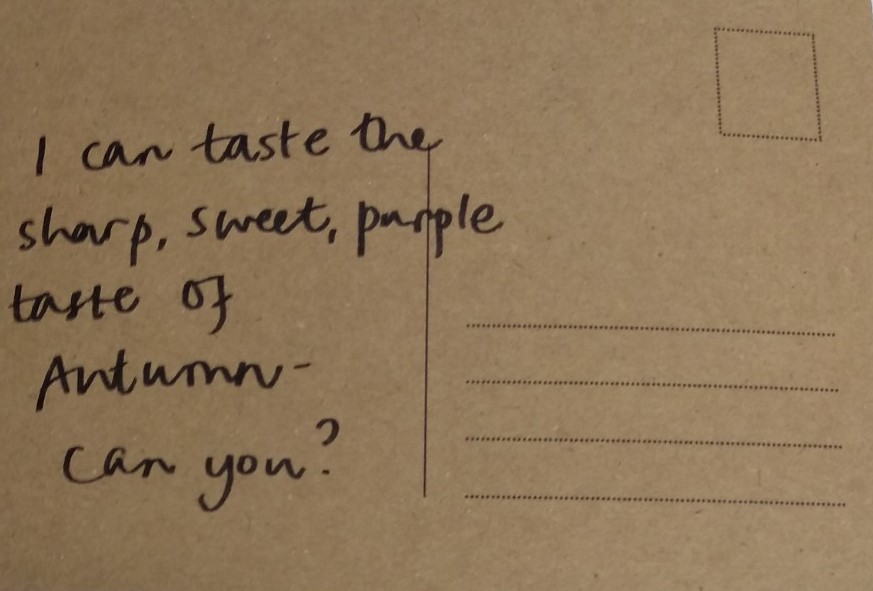 I can taste the
sharp, sweet, purple
taste of
Autumn-
Can you?